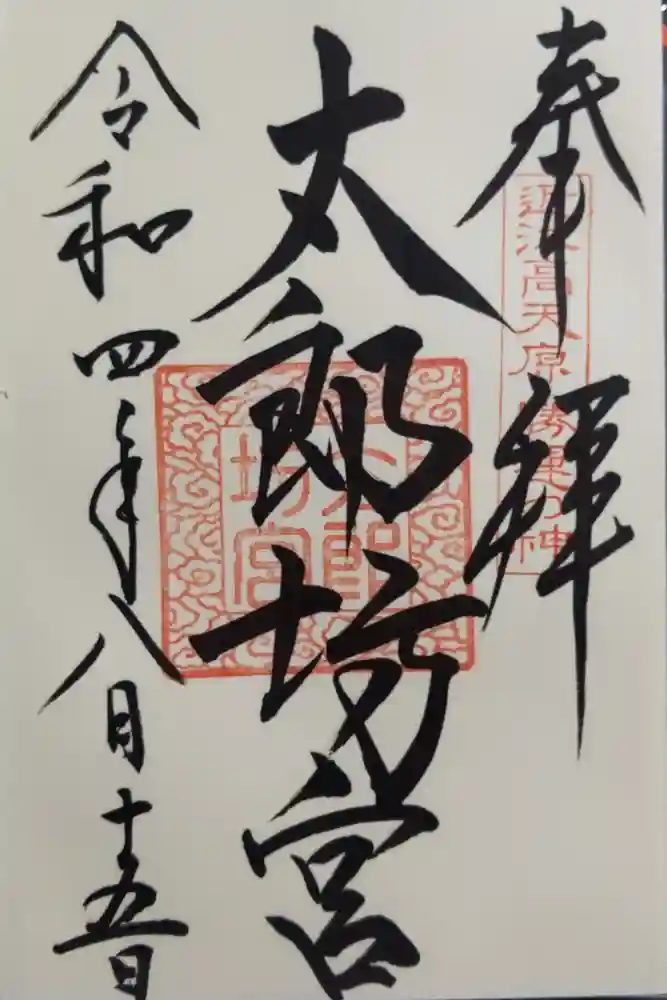 奉拝
近江高天原勝運の神
太郎坊宮
太郎坊宮
令和四年八月十五日